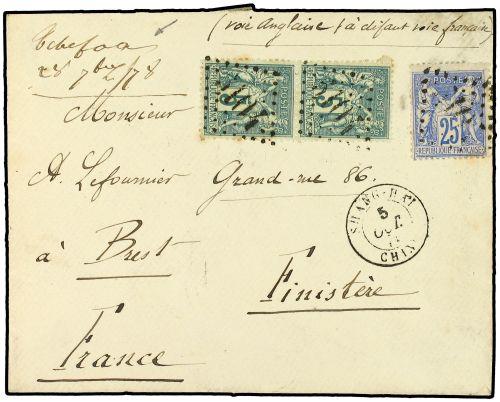 (voie Anglaise / à défaut voie française)
Tchefoo
28 7bre/78
Monsieur
A. Lefournier Grand-rue 86.
à Brest
Finistère
France
POSTES
25
REPUBLIQUE FRANCAISE
SHANG-HAI
5
OCT.
CHINE